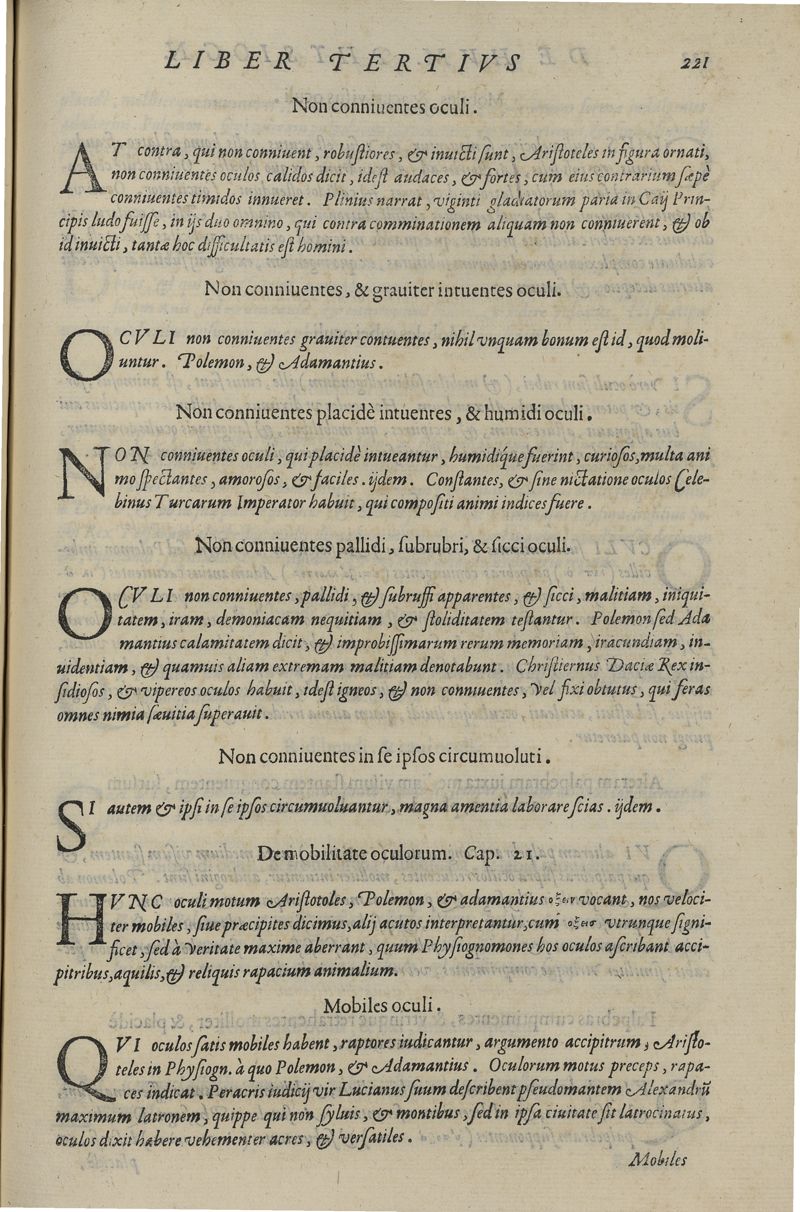 LIBER TERTIVS 221
Non conniuentes oculi.
AT contra, qui non conniuent, robustiores, & inuicti sunt, Aristoteles in figura ornati,
non conniuentes oculos calidos dicit, idest audaces, & fortes, cum eius contrarium sæpè
conniuentes timidos innueret. Plinius narrat, viginti gladiatorum paria in Caij Prin-
cipis ludo fuisse, in ijs duo omnino, qui contra comminationem aliquam non conniuerent, & ob
id inuicti, tantæ hoc difficultatis est homini.
Non conniuentes, & grauiter intuentes oculi.
OCVLI non conniuentes grauiter contuentes, nihil vnquam bonum est id, quod moli-
untur. Polemon, & Adamantius.
Non conniuentes placidè intuentes, & humidi oculi.
NON conniuentes oculi, qui placidè intueantur, humidiq́ue fuerint, curiosos, multa ani
mo spectantes, amorosos, & faciles. ijdem. Constantes, & sine nictatione oculos Cele-
binus Turcarum Imperator habuit, qui compositi animi indices fuere.
Non conniuentes pallidi, subrubri, & sicci oculi.
OCVLI non conniuentes, pallidi, & subruffi apparentes, & sicci, malitiam, iniqui-
tatem, iram, demoniacam nequitiam, & stoliditatem testantur. Polemon sed Ada
mantius calamitatem dicit, & improbissimarum rerum memoriam, iracundiam, in-
uidentiam, & quamuis aliam extremam malitiam denotabunt. Christiernus Daciæ Rex in-
sidiosos, & vipereos oculos habuit, idest igneos, & non conniuentes, vel fixi obtutus, qui feras
omnes nimia sæuitia superauit.
Non conniuentes in se ipsos circumuoluti.
SI autem & ipsi in se ipsos circumuoluantur, magna amentia laborare scias. ijdem.
De mobilitate oculorum. Cap. 21.
HVNC oculi motum Aristotoles, Polemon, & adamantius vocant, nos veloci-
ter mobiles, siue præcipites dicimus, alij acutos interpretantur, cum vtrunque signi-
ficet, sed à veritate maxime aberrant, quum Physiognomones hos oculos ascribant acci-
pitribus, aquilis, & reliquis rapacium animalium.
Mobiles oculi.
QVI oculos satis mobiles habent, raptores iudicantur, argumento accipitrum, Aristo-
teles in Physiogn. à quo Polemon, & Adamantius. Oculorum motus preceps, rapa-
ces indicat. Peracris iudicij vir Lucianus suum describent pseudomantem Alexandrũ
maximum latronem, quippe qui non syluis, & montibus, sed in ipsa ciuitate sit latrocinatus,
oculos dixit habere vehementer acres, & versatiles.
Mobiles